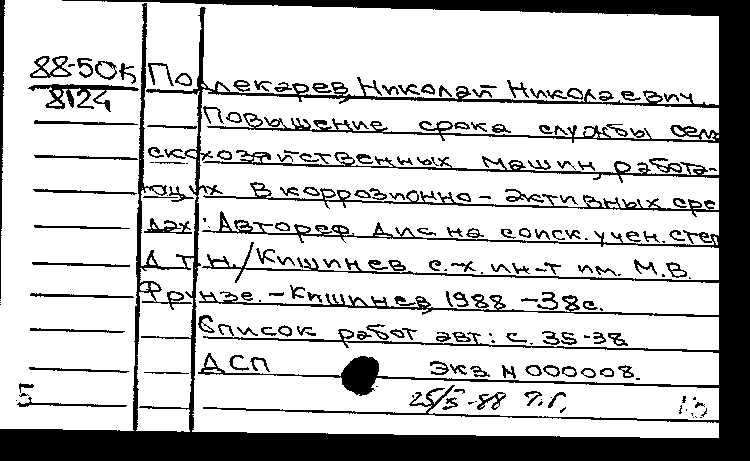 88-50К Подлекарев, Николай Николаевич.
8124
Повышение срока службы сель
скохозяйственных машин, работа-
ющих в коррозионно-активных сре
дах: Автореф. Дис. на соиск. учен. степ
Д.Т.Н./Кишинев. с.-х. ин-т им. М.В.
Фрунзе. - Кишинев, 1988. - 38с.
Список работ авт: с. 35-38.
ДСП экз. N 000008.
25/X-88 Т.Г.